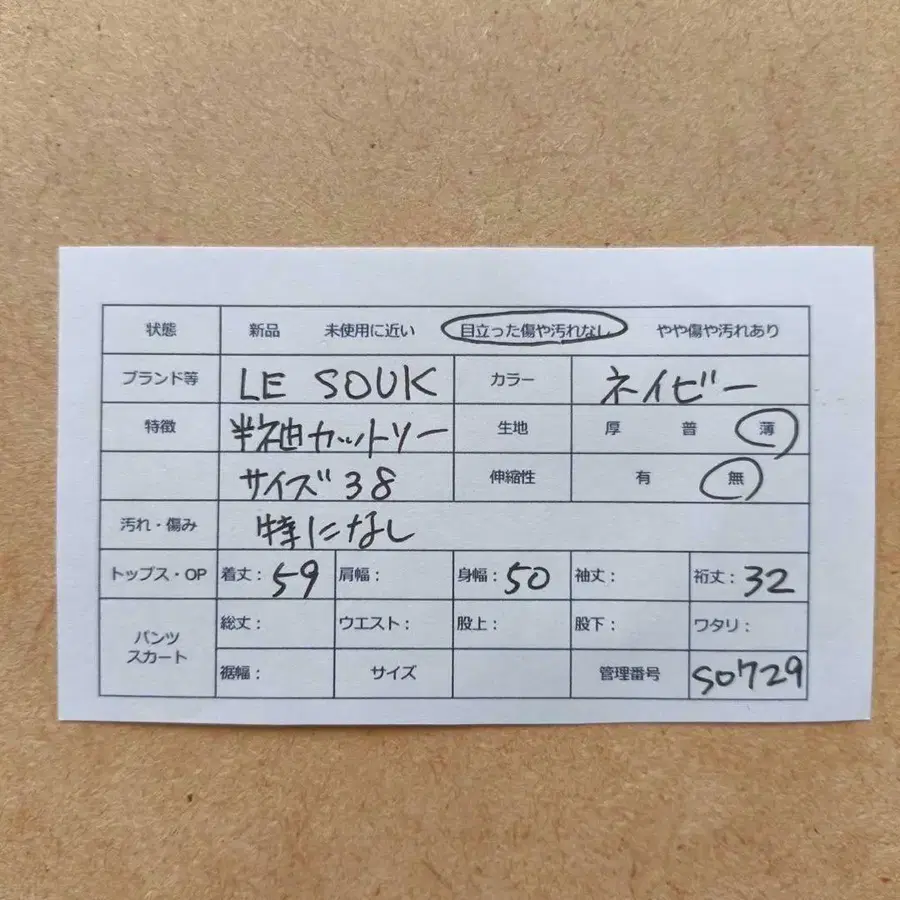 状態 新品 未使用に近い 目立った傷や汚れなし やや傷や汚れあり
ブランド等 LE SOUK カラー ネイビー
特徴 半袖カットソー 生地 厚 普 薄
サイズ38 伸縮性 有 無
汚れ・傷み 特になし
トップス・OP 着丈：59 肩幅： 身幅：50 袖丈： 裄丈：32
パンツ スカート 総丈： ウエスト： 股上： 股下： ワタリ：
裾幅： サイズ 管理番号 SO729